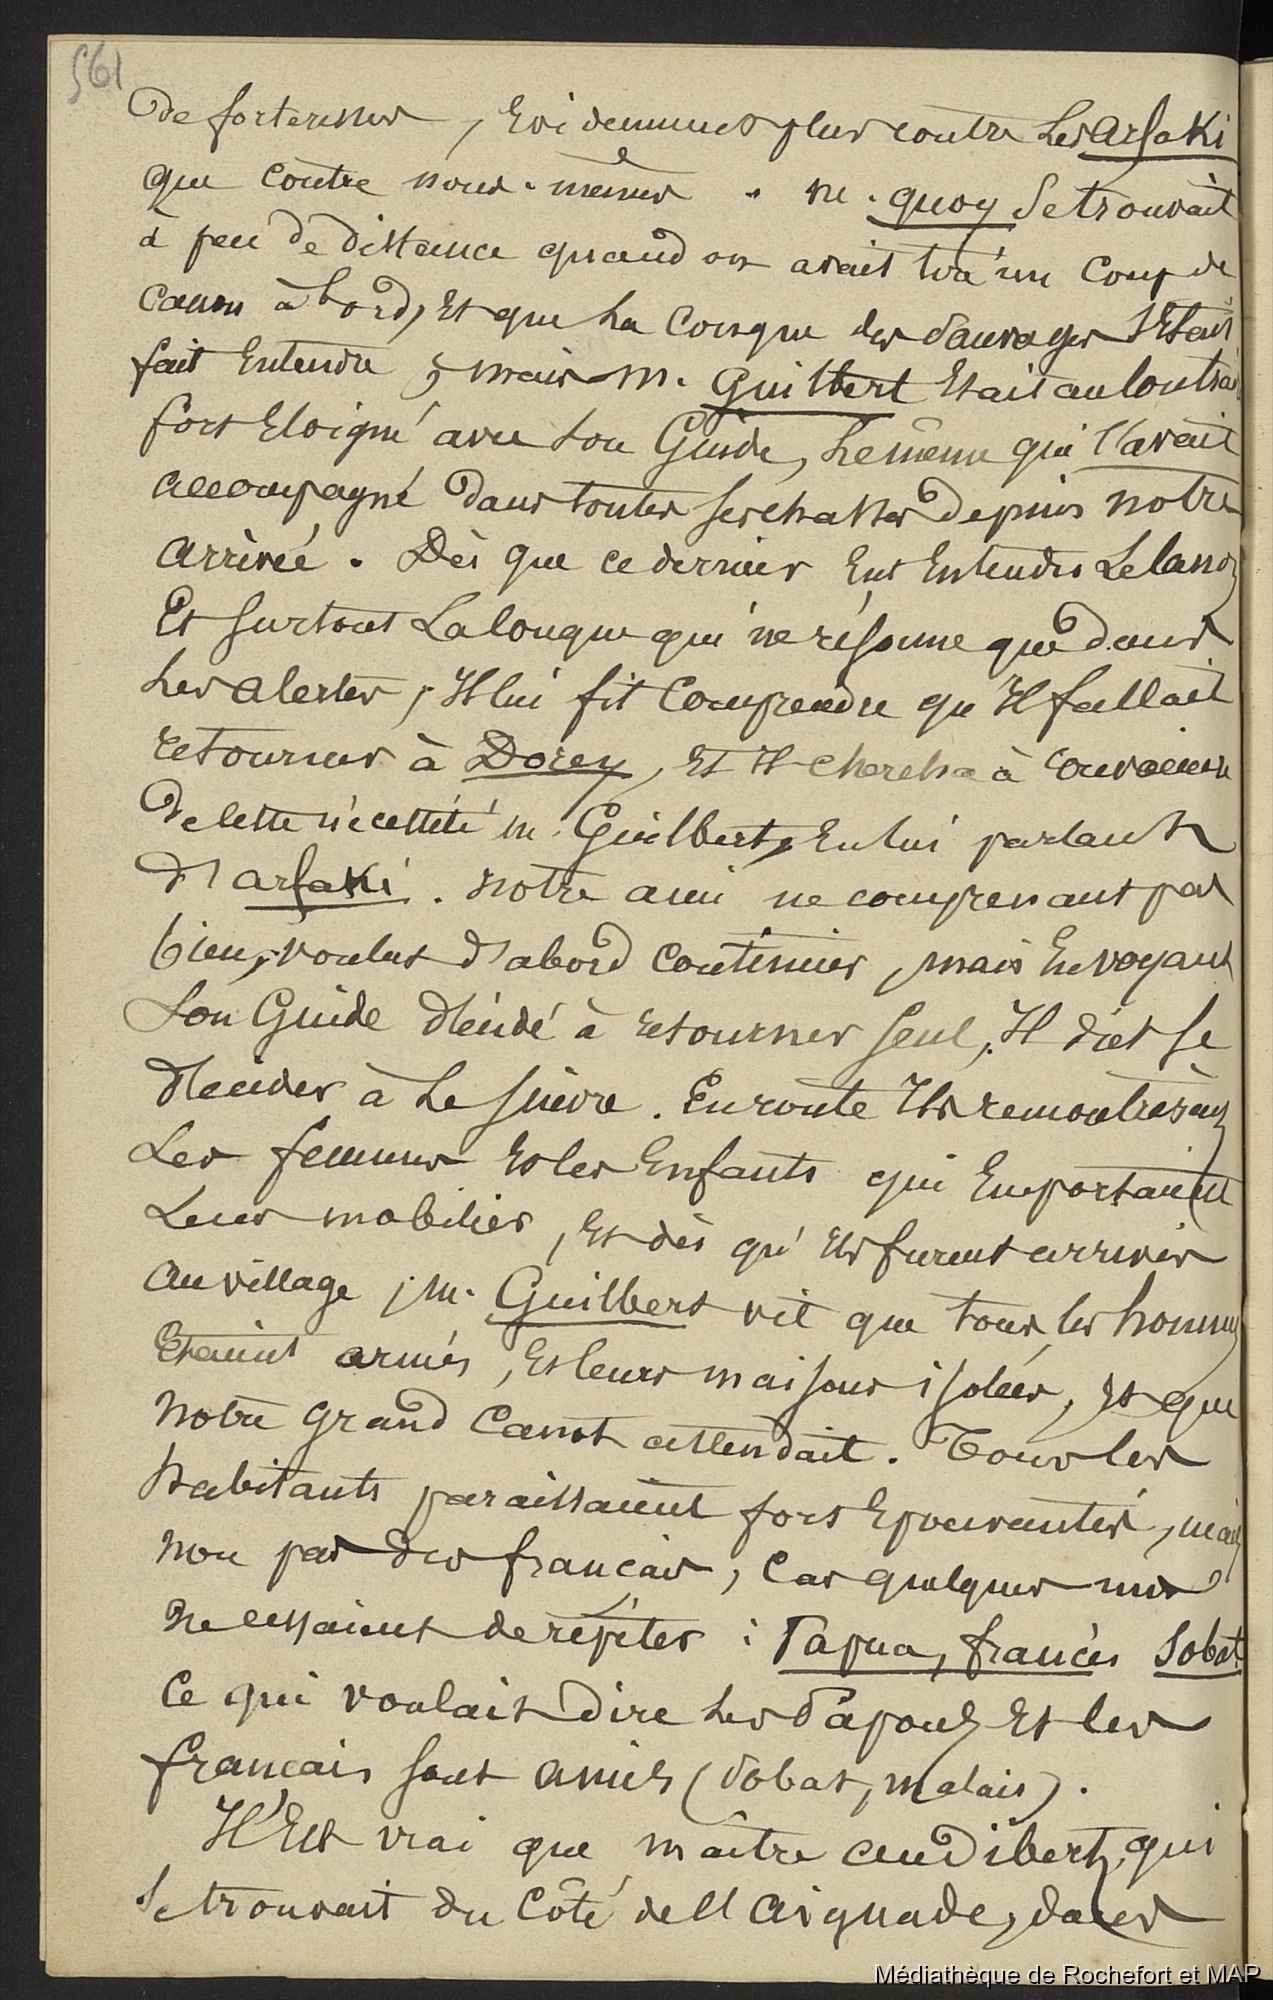 561
de forteresses, Evidemment plus contre les arfaki
que contre nous-mêmes. M. quoy se trouvait
à peu de distance quand on avait tiré un coup de
canon à bord, et que la conque des sauvages s'Etait
fait Entendre ; mais M. Guilbert Etait au contraire
fort Eloigné avec son Guide, le même qui l'avait
accompagné dans toutes ses chasses depuis notre
arrivée. Dès que ce dernier Eut Entendu le canon
Et surtout la conque qui ne résonne que dans
les alertes, Il lui fit comprendre qu'Il fallait
retourner à Dorey, Et Il chercha à convaincre
de cette nécessité M. Guilbert, En lui parlant
d'arfaki. notre ami ne comprenant pas
bien, voulut d'abord continuer, mais En voyant
son Guide décidé à retourner seul, Il dût se
décider à le suivre. En route Ils rencontrèrent
Les femmes Et les Enfants qui Emportaient
Leur mobilier, Et dès qu'Ils furent arrivés
au village, M. Guilbert vit que tous les hommes
Etaient armés, Et leurs maisons isolées, Et que
notre grand canot attendait. Tous les
habitants paraissaient fort Epouvantés, mais
non pas des français, Car quelques uns
ne cessaient de répéter : Papua, francès Sobat
Ce qui voulait dire les Papous Et les
français sont amis (Sobat, malais).
Il Est vrai que maître audibert, qui
se trouvait du côté de l'aiguade, dans
Médiathèque de Rochefort et MAP